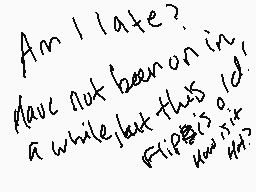 Am I late?
Have not been on in
a while, but this
Flip is old,
How is it
Hot?